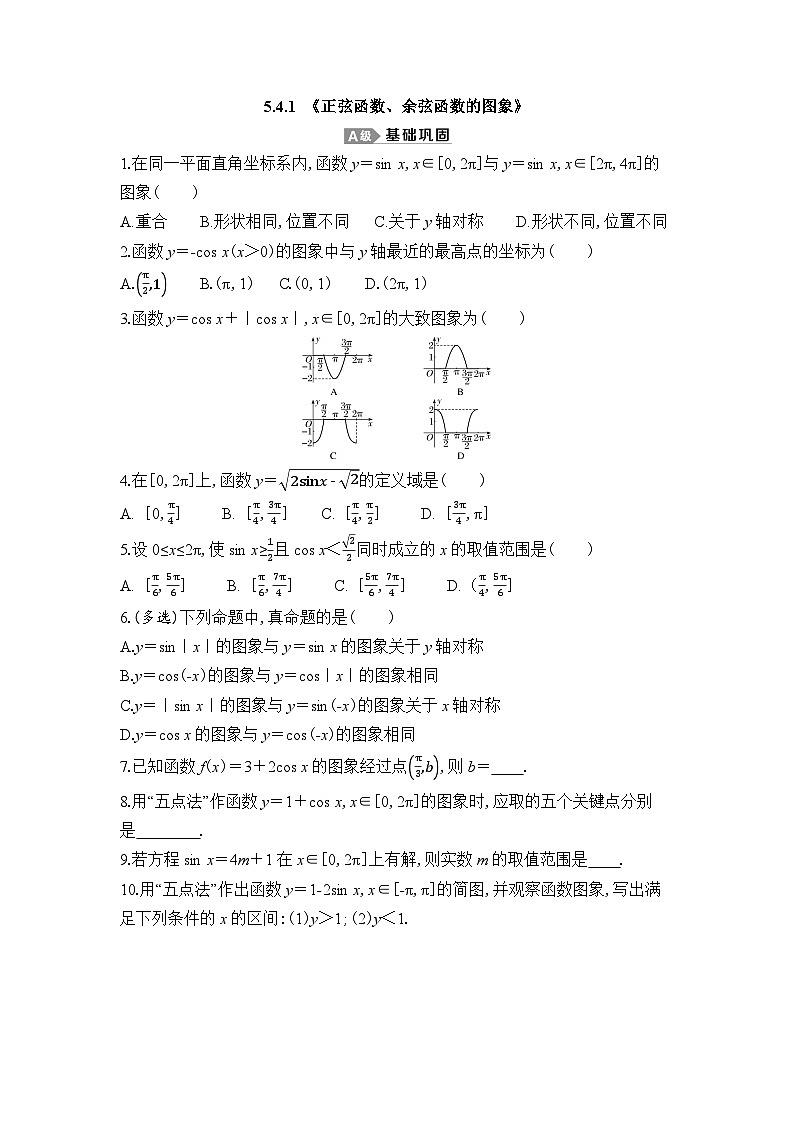 5.4.1 《正弦函数、余弦函数的图象》
A级 基础巩固
1.在同一平面直角坐标系内,函数y=sin x,x∈[0,2π]与y=sin x,x∈[2π,4π]的
图象(  )
A.重合  B.形状相同,位置不同  C.关于y轴对称  D.形状不同,位置不同
2.函数y=-cos x(x>0)的图象中与y轴最近的最高点的坐标为(  )
A.(π/2,1)  B.(π,1)  C.(0,1)  D.(2π,1)
3.函数y=cos x+|cos x|,x∈[0,2π]的大致图象为(  )
y O π/2 π 3π/2 2π x -1 -2
A
y 2 1 O π/2 π 3π/2 2π x
B
y π/2 π 3π/2 2π O x -1 -2
C
y 2 1 O π/2 π 3π/2 2π x
D
4.在[0,2π]上,函数y=√(2sinx-√2)的定义域是(  )
A. [0,π/4]  B. [π/4,3π/4]  C. [π/4,π/2]  D. [3π/4,π]
5.设0≤x≤2π,使sin x≥1/2且cos x<√2/2同时成立的x的取值范围是(  )
A. [π/6,5π/6]  B. [π/6,7π/4]  C. [5π/6,7π/4]  D. (π/4,5π/6]
6.(多选)下列命题中,真命题的是(  )
A.y=sin|x|的图象与y=sin x的图象关于y轴对称
B.y=cos(-x)的图象与y=cos|x|的图象相同
C.y=|sin x|的图象与y=sin(-x)的图象关于x轴对称
D.y=cos x的图象与y=cos(-x)的图象相同
7.已知函数f(x)=3+2cos x的图象经过点(π/3,b),则b=____.
8.用“五点法”作函数y=1+cos x,x∈[0,2π]的图象时,应取的五个关键点分别
是________.
9.若方程sin x=4m+1在x∈[0,2π]上有解,则实数m的取值范围是____.
10.用“五点法”作出函数y=1-2sin x,x∈[-π,π]的简图,并观察函数图象,写出满
足下列条件的x的区间:(1)y>1;(2)y<1.